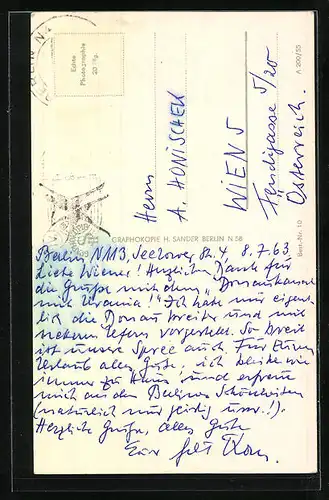 Echte
Photographie
20 Pfg.
A 200/55
Best.-Nr. 10
GRAPHOKOPIE H. SANDER BERLIN N 58
Herrn
A. HONISCHEK
WIEN 5
Fendigasse 5/20
Österreich.
Berlin N113, Seelower Str. 4, 8.7.63
Liebe Wiener! Herzlichen Dank für
die Grüße mit dem "Donaukanal
mit Urania"! Ich habe mir eigent-
lich die Donau breiter und mit
Ufern vorgestellt. So breit
ist unsere Spree auch. Für Euren
Urlaub alles Gute, ich bleibe wie
immer zu Haus und erfreue
mich an den Berliner Schönheiten
(natürlich nur usw.!).
Herzliche Grüße, alles Gute
Euer